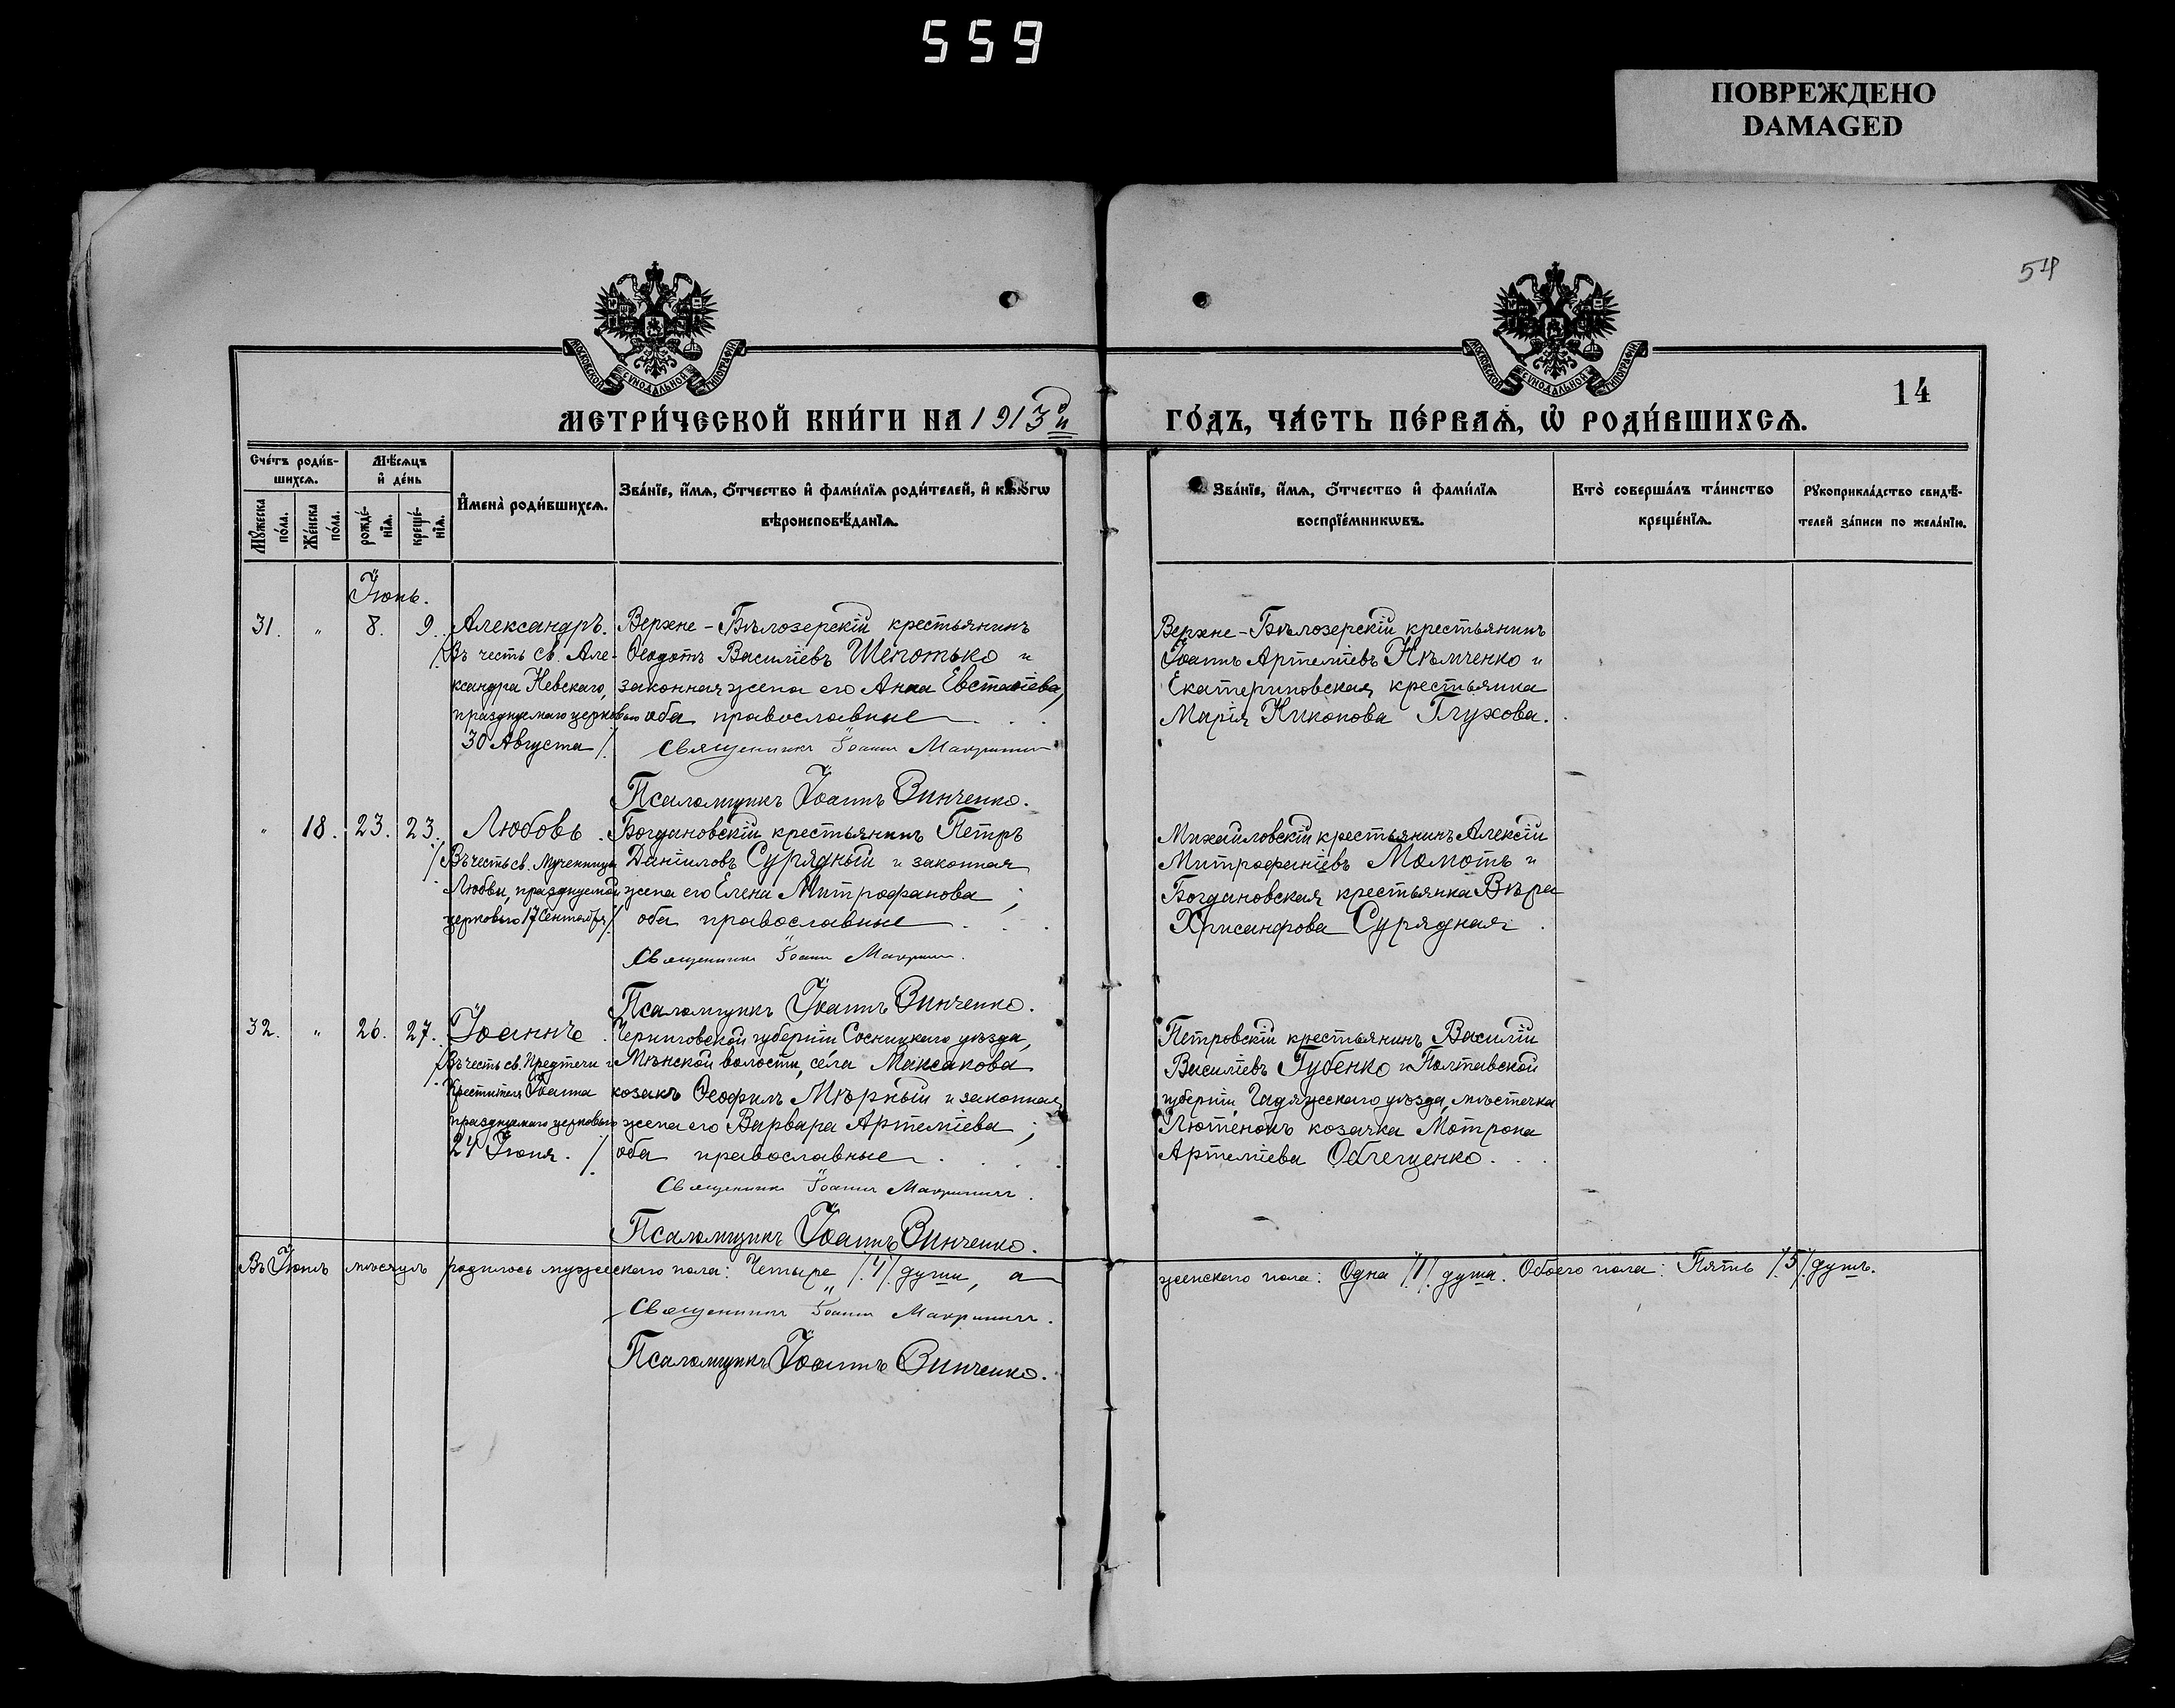 559
ПОВРЕЖДЕНО
DAMAGED
54
МОСКОВСКОЙ СѴНОДАЛЬНОЙ ТИПОГРАФІИ
МОСКОВСКОЙ СѴНОДАЛЬНОЙ ТИПОГРАФІИ
14
МЕТРИ́ЧЕСКОЙ КНИ́ГИ НА 1913й
ГО́ДЪ, ЧА́СТЬ ПЕ́РВАѦ, Ѡ҆ РОДИ́ВШИХСѦ.
Сче́тъ роди́в-
шихсѧ.
Мѣ́сѧцъ
и҆ де́нь
Мꙋ́жеска
по́ла.
Же́нска
по́ла.
рожде́-
нїѧ.
креще́-
нїѧ.
И҆мена̀ роди́вшихсѧ.
Зва́нїе, и҆́мѧ, ѻ҆́тчество и҆ фами́лїѧ роди́телей, и҆ како́гѡ
вѣроисповѣ́данїѧ.
Зва́нїе, и҆́мѧ, ѻ҆́тчество и҆ фами́лїѧ
воспрїе́мникѡвъ.
Кто̀ соверша́лъ та́инство
креще́нїѧ.
Рꙋкоприкла́дство свидѣ́-
телей за́писи по жела́нїю.
Іюнь.
31. " 8. 9. Александръ.
/Въ честь св. Але-
ксандра Невскаго,
празднуемаго церковью
30 Августа/.
Верхне-Бѣлозерскій крестьянинъ
Ѳеодотъ Василіевъ Шепотько и
законная жена его Анна Евстаѳіева,
оба православные
Священникъ Іоаннъ
Псаломщикъ Іоаннъ Винченко.
Верхне-Бѣлозерскій крестьянинъ
Іоаннъ Артеміевъ Нѣмченко и
Екатериновская крестьянка
Марія Никонова Глухова.
" 18. 23. 23. Любовь.
/Въ честь св. Мученицы
Любви, празднуемой
церковью 17 Сентября/
Богдановскій крестьянинъ Петръ
Даніиловъ Сурядный и законная
жена его Елена Митрофанова;
оба православные
Священникъ Іоаннъ
Псаломщикъ Іоаннъ Винченко.
Михайловскій крестьянинъ Алексій
Митрофаніевъ Момотъ и
Богдановская крестьянка Вѣра
Хрисанфова Сурядная.
32. " 26. 27. Іоаннъ
/Въ честь св. Предтечи и
Крестителя Іоанна
празднуемаго церковью
24 Іюня./
Черниговской губерніи Сосницкаго уѣзда,
Мѣнской волости, села Максакова
козакъ Ѳеофилъ Мѣрный и законная
жена его Варвара Артеміева;
оба православные
Священникъ Іоаннъ
Псаломщикъ Іоаннъ Винченко.
Петровскій крестьянинъ Василій
Василіевъ Губенко и Полтавской
губерніи, Гадячскаго уѣзда, мѣстечка
Лютенокъ козачка Мотрона
Артеміева
Въ Іюнѣ мѣсяцѣ родилось мужескаго пола: Четыре /4/ души, а
женскаго пола: Одна /1/ душа. Обоего пола: Пять /5/ душъ.
Священникъ Іоаннъ
Псаломщикъ Іоаннъ Винченко.